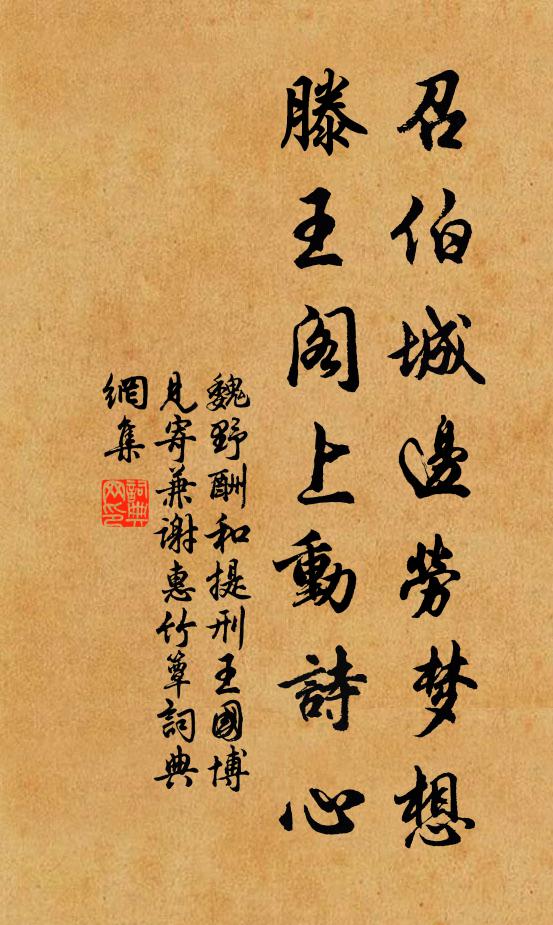 召伯城邊勞梦想
滕王阁上動詩心
魏野酬和提刑王國博
見寄兼谢惠竹簟詞典
網集
詞典
网印